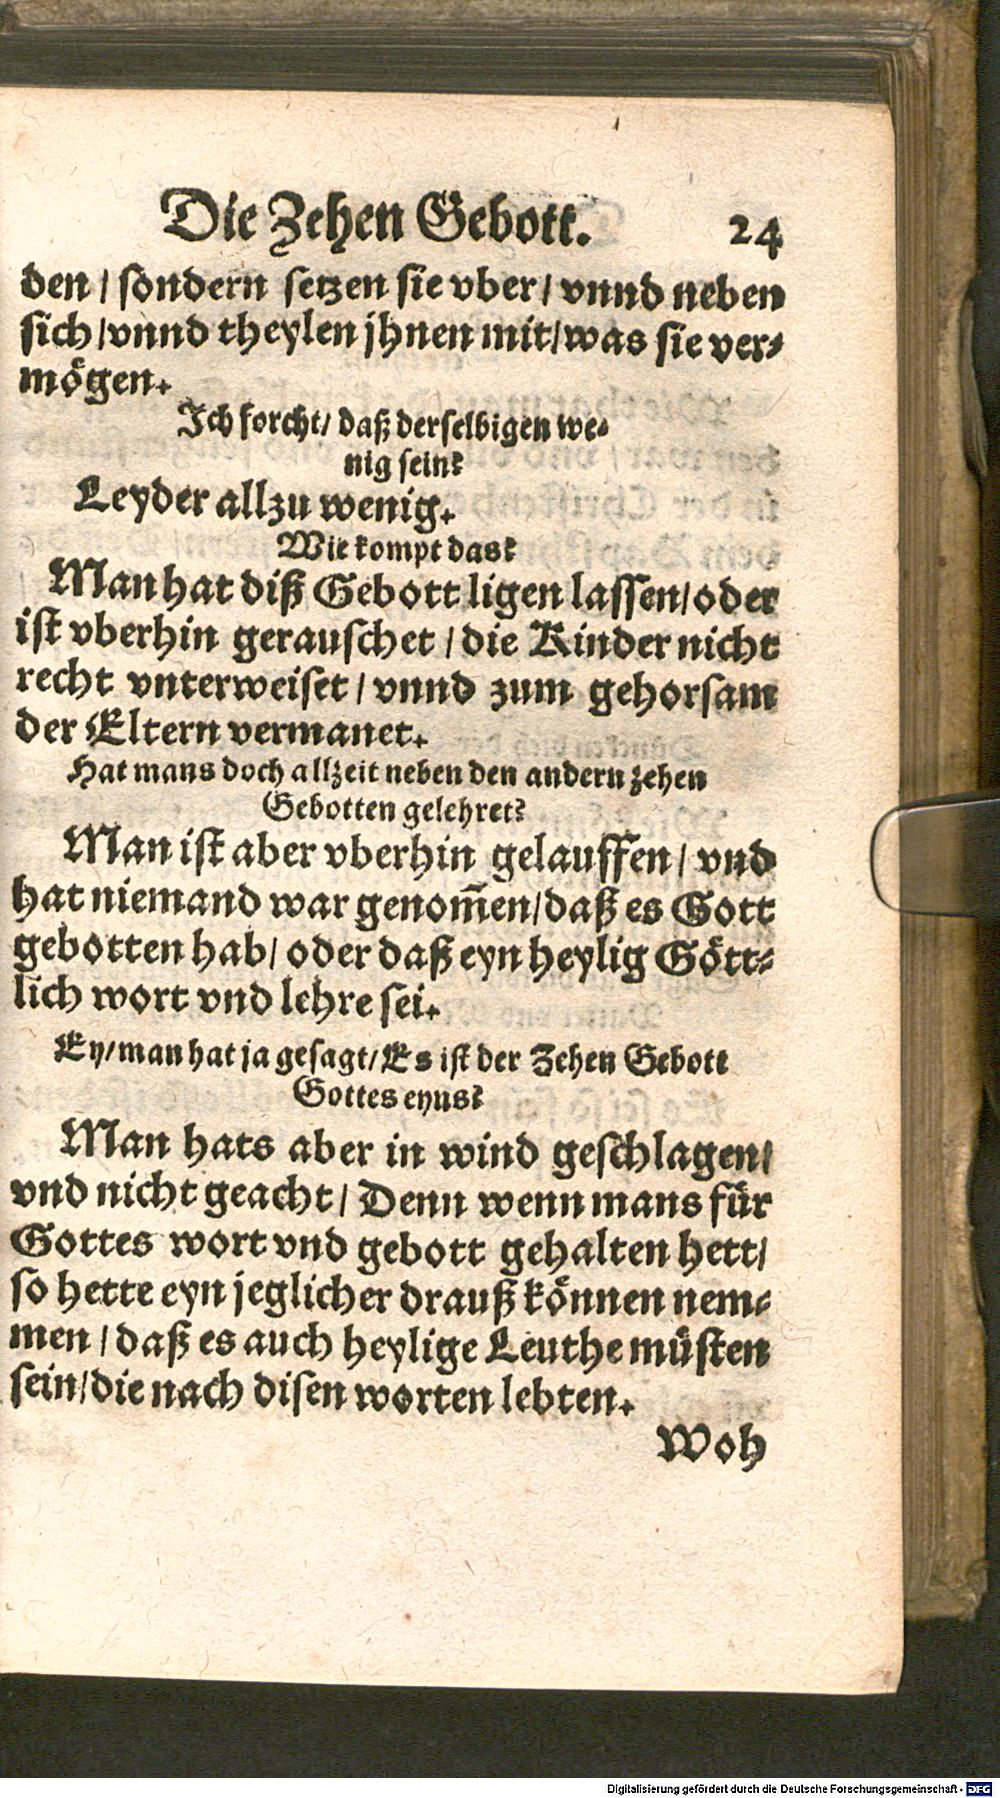 Die Zehen Gebott. 24
den / sondern setzen sie vber / vnnd neben
sich / vnnd theylen jhnen mit / was sie ver⸗
mögen.
Ich forcht / daß derselbigen we⸗
nig sein?
Leyder allzu wenig.
Wie kompt das?
Man hat diß Gebott ligen lassen / oder
ist vberhin gerauschet / die Kinder nicht
recht vnterweiset / vnnd zum gehorsam
der Eltern vermanet.
Hat mans doch allzeit neben den andern zehen
Gebotten gelehret?
Man ist aber vberhin gelauffen / vnd
hat niemand war genom̄en / daß es Gott
gebotten hab / oder daß eyn heylig Gött⸗
lich wort vnd lehre sei.
Ey / man hat ja gesagt / Es ist der Zehen Gebott
Gottes eyns?
Man hats aber in wind geschlagen /
vnd nicht geacht / Denn wenn mans für
Gottes wort vnd gebott gehalten hett /
so hette eyn jeglicher drauß können nem⸗
men / daß es auch heylige Leuthe müsten
sein / die nach disen worten lebten.
Woh
Digitalisierung gefördert durch die Deutsche Forschungsgemeinschaft - DFG